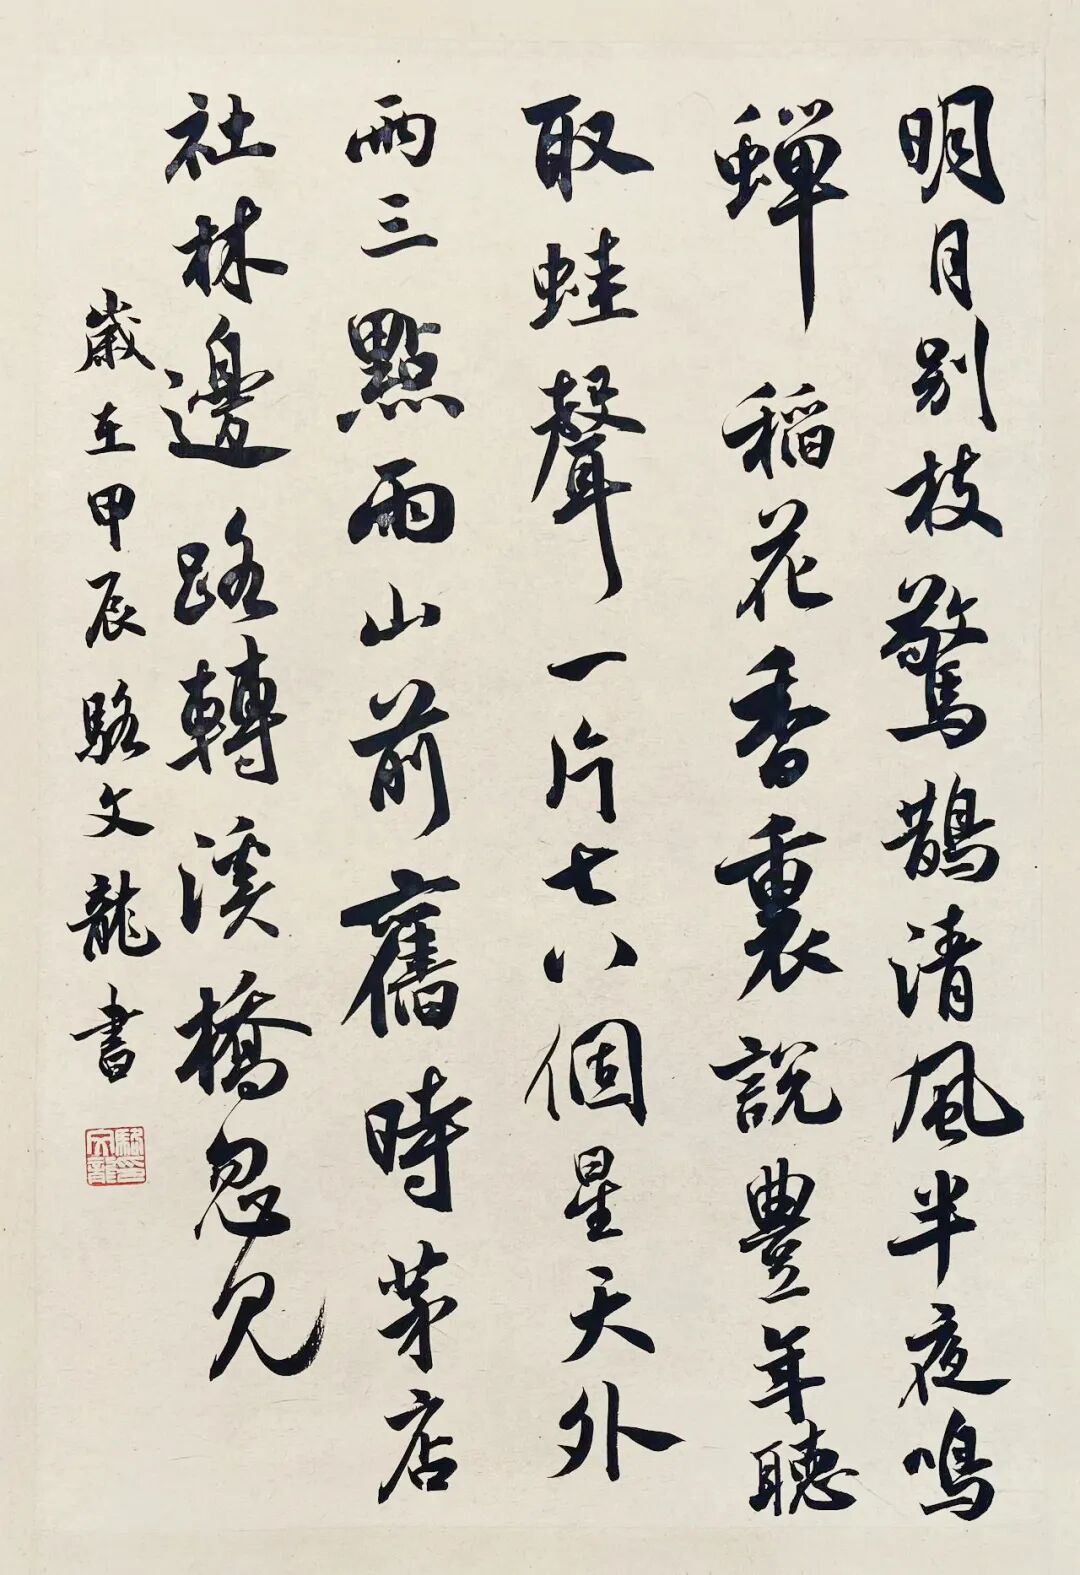 明月別枝驚鵲清風半夜鳴
蟬稻花香裏說豐年聽
取蛙聲一片七八個星天外
兩三點雨山前舊時茅店
社林邊路轉溪橋忽見
歲在甲辰駱文龍書
駱文龍印